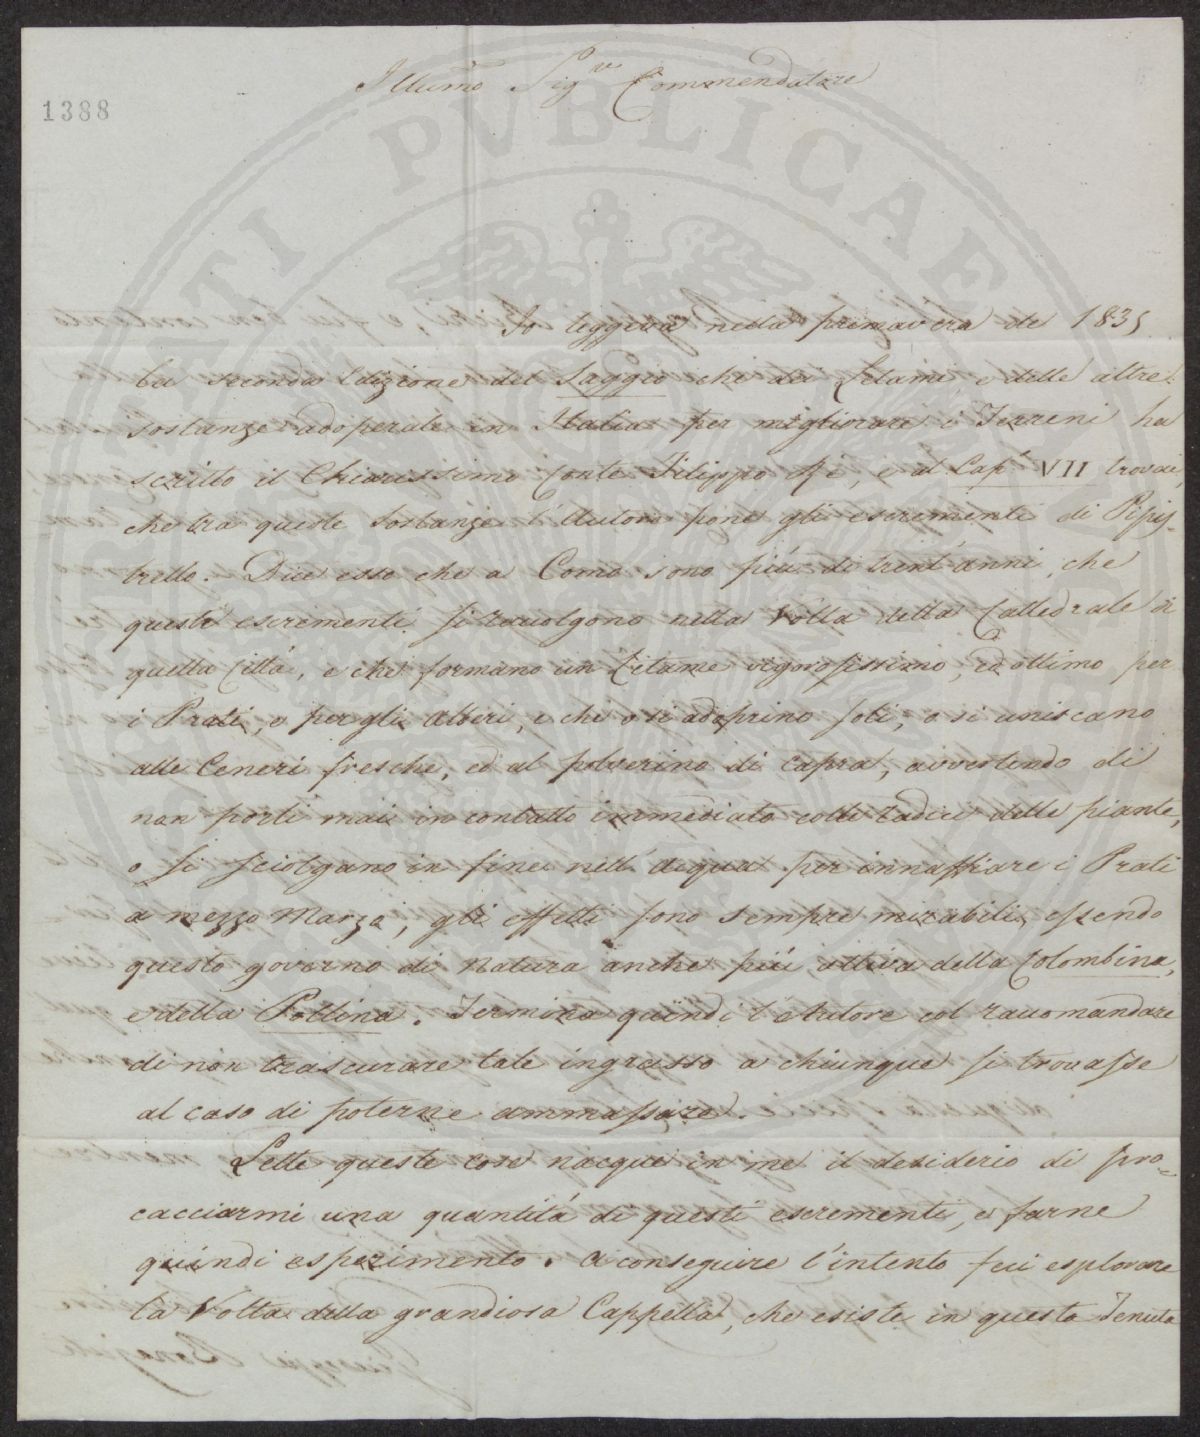 Illũmo Sigre Commendatore
1388
Io leggeva nella primavera de 1835
la seconda Edizione del Saggio che dei Letami e delle altre
sostanze adoperate in Italia per migliorare i Terreni ha
scritto il Chiarissimo Conte Filippo Re, e al Cap. VII trovai,
che tra queste sostanze l'Autore pone gli escrementi di Pipis-
trello. Dice esso che a Como sono più di trent'anni, che
questi escrementi si raccolgono nella Volta della Cattedrale di
quella Città, e che formano un Letame vigorosissimo, ed ottimo per
i Prati, e per gli Alberi, e che o si adoprino soli, o si uniscano
alle Ceneri fresche, ed al polverino di capra, avvertendo di
non porli mai in contatto immediato colle radici delle piante,
o si sciolgano in fine nell'acqua per innaffiare i Prati
a mezzo Marzo, gli effetti sono sempre mirabili, essendo
questo governo di natura anche più attiva della Colombina,
e della Pollina. Termina quindi l'Autore col raccomandare
di non trascurare tale ingrasso a chiunque si trovasse
al caso di poterne ammassare.
Lette queste cose nacque in me il desiderio di pro=
cacciarmi una quantità di questi escrementi, e farne
quindi esperimento. A conseguire l'intento feci esplorare
la Volta della grandiosa Cappella, che esiste in questa Tenuta